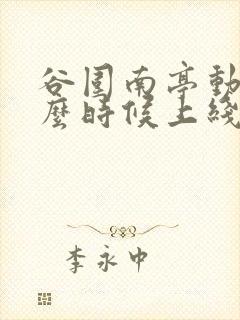 谷围南亭動
麼時候上綫
李永中